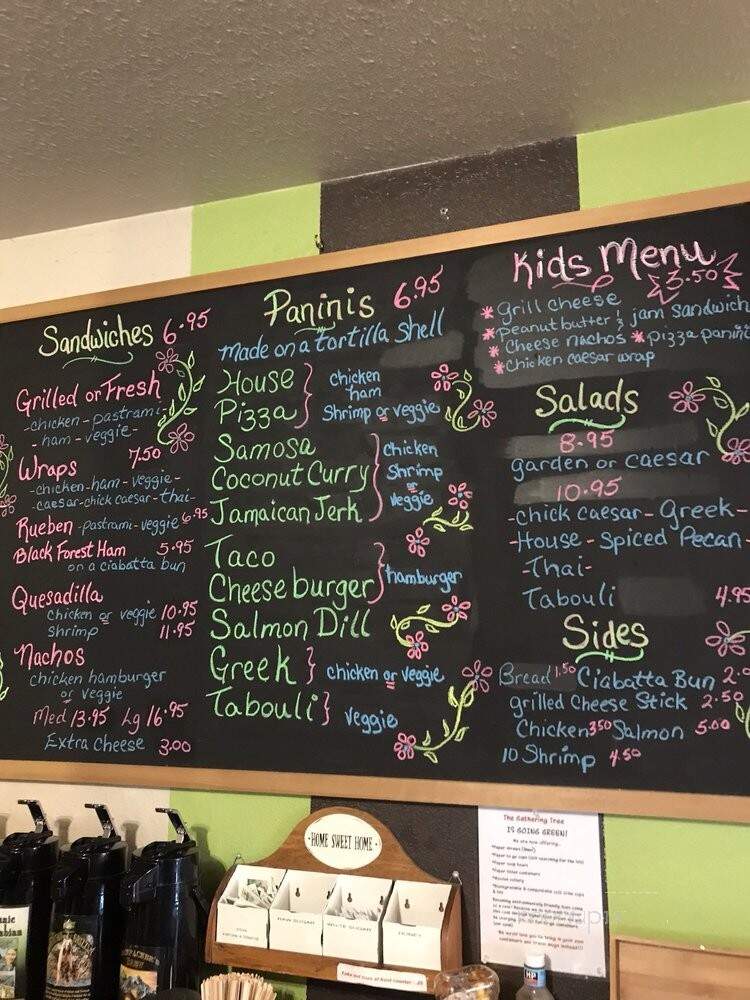 Sandwiches 6.95
Grilled or Fresh
-chicken-pastrami-
-ham-veggie-
Wraps 7.50
-chicken-ham-veggie-
-caesar-chick caesar-thai-
Rueben -pastrami-veggie 6.95
Black Forest Ham 5.95
on a ciabatta bun
Quesadilla
chicken or veggie 10.95
shrimp 11.95
Nachos
chicken hamburger
or veggie
Med 13.95 Lg 16.95
Extra Cheese 3.00
Paninis 6.95
made on a tortilla shell
House
Pizza
chicken
ham
Shrimp or veggie
Samosa
Coconut Curry
Jamaican Jerk
chicken
Shrimp
or
veggie
Taco
Cheeseburger
hamburger
Salmon Dill
Greek } chicken or veggie
Tabouli } veggie
Kids Menu
3.50
* grill cheese
* peanut butter & jam sandwich
* Cheese nachos * pizza panini
* chicken caesar wrap
Salads
8.95
garden or caesar
10.95
-chick caesar-Greek-
-House-Spiced Pecan-
-Thai-
Tabouli 4.95
Sides
Bread 1.50 Ciabatta Bun 2.
grilled Cheese Stick 2.50
Chicken 3.50 Salmon 5.00
10 Shrimp 4.50
-HOME SWEET HOME-
RAW SUGAR
WHITE SUGAR
HONEY
The Gathering Tree
IS GOING GREEN!
We are now offering...
HP